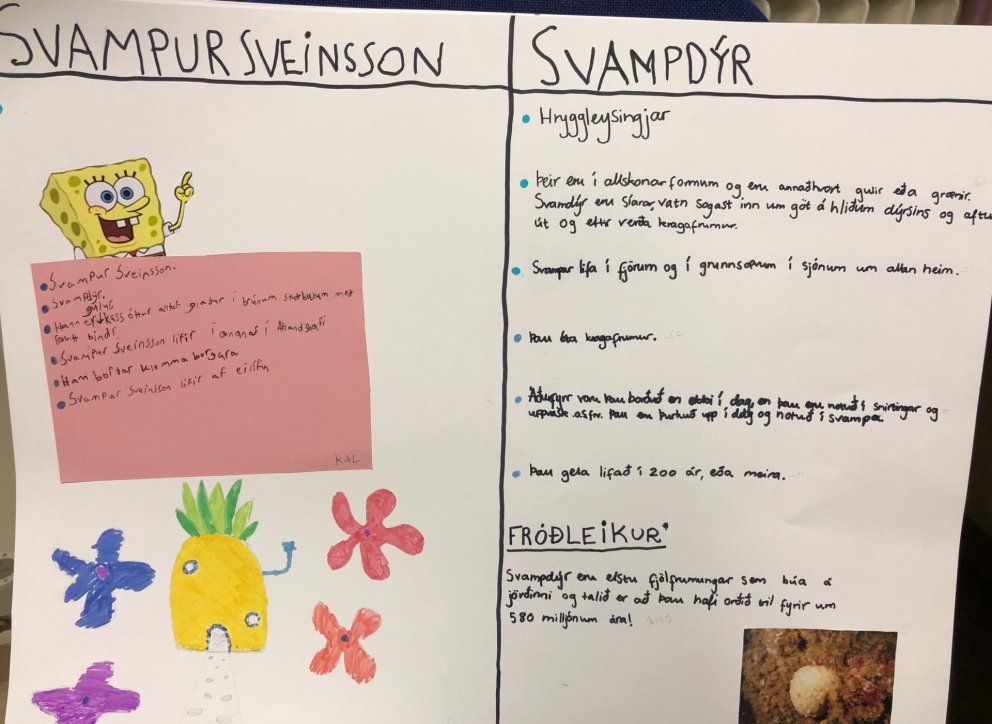 SVAMPUR SVEINSSON
Svampur Sveinsson.
Svampdýr.
gulur
Hann er kassóttur alltaf glaður í brúnum stuttbuxum með
rautt bindi.
Svampur Sveinsson lifir í ananas í
Hann borðar klemma borgara
Svampur Sveinsson lifir af eilífu
KAL
SVAMPDÝR
Hryggleysingjar
Þeir eru í allskonar formum og eru annaðhvort gulir eða grænir.
Svamdýr eru síarar, vatn sogast inn um göt á hliðum dýrsins og aftu
út og eftir verða kragafrumur.
Svampar lifa í fjörum og í grunnsævum í sjónum um allan heim.
Þau éta kragafrumur.
Áðufyrr voru þau borðuð en ekki í dag, en þau eru notuð í snirtingar og
uppvask .o.s.fr. Þau eru þurkuð upp í dag og notuð í svampa.
Þau geta lifað í 200 ár, eða meira.
FRÓÐLEIKUR*
Svampdýr eru elstu fjölfrumungar sem búa á
jörðinni og talið er að þau hafi orðið til fyrir um
580 milljónum ára!